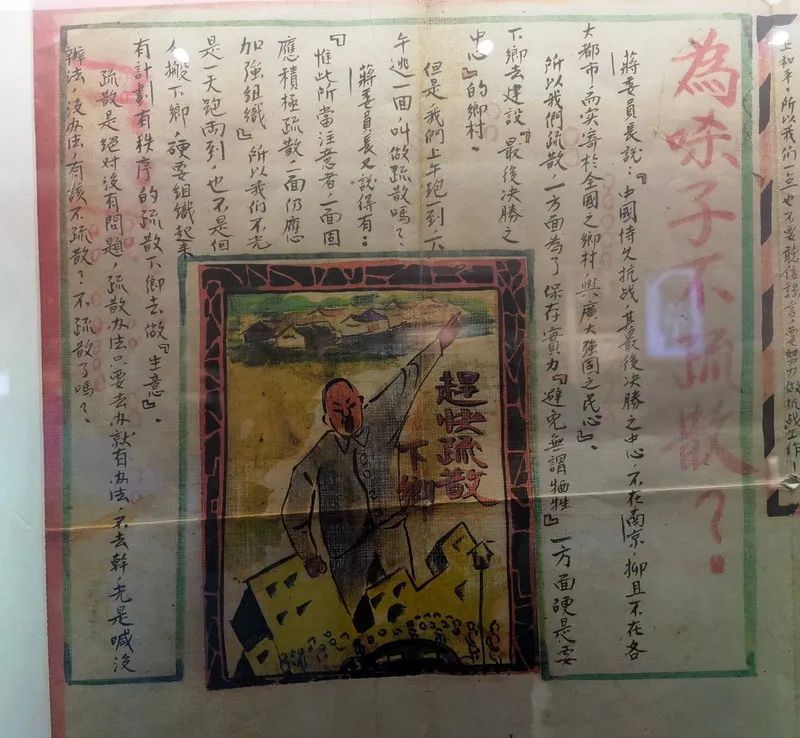 上和平，所以我们一点也不要信謠言，要努力做抗战工作
為啥子不疏散？
蔣委員長說：『中國持久抗战，其最後决勝之中心，不在南京，抑且不在各
大都市，而实寄於全國之鄉村與廣大強固之民心』。
所以我們疏散，一方面為了保存實力『避免無謂牺牲』一方面硬是要
下鄉去建設『最後决勝之
中心』的鄉村。
但是，我們上午跑一到，下
午逃一面，叫做疏散嗎？
蔣委員長又說得有：
『惟此所當注意者，一面固
應積極疏散，一面仍應
加強組織』所以我們不光
是一天跑两到，也不是個
人搬下鄉，硬要組織起來
有計劃有秩序的疏散下鄉去做『生意』。
疏散是絕对没有問題，疏散办法只要去办就有办法，不去幹，光是喊没
辦法，没办法，有該不疏散？不疏散了嗎？
趕快疏散
下鄉